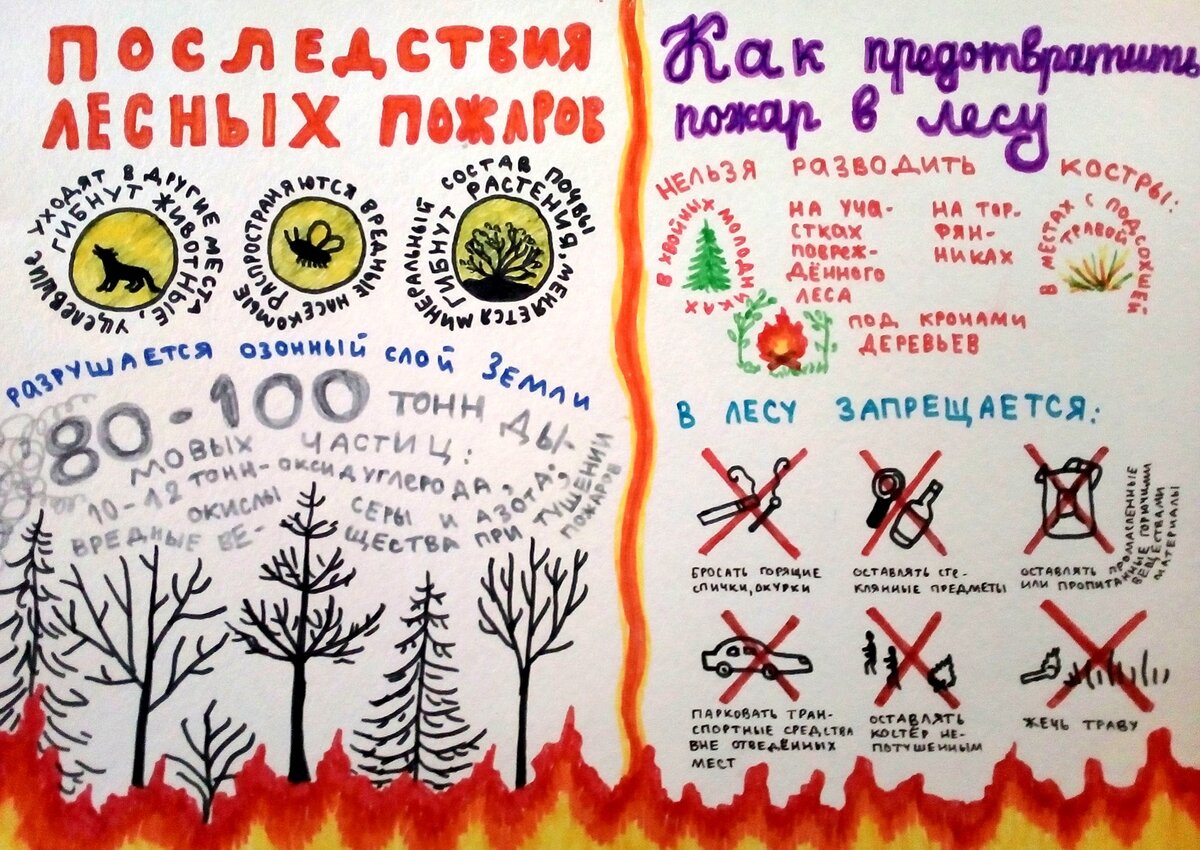 ПОСЛЕДСТВИЯ
ЛЕСНЫХ ПОЖАРОВ
ГИБНУТ ЖИВОТНЫЕ, УЦЕЛЕВШИЕ УХОДЯТ В ДРУГИЕ МЕСТА
РАСПРОСТРАНЯЮТСЯ ВРЕДНЫЕ НАСЕКОМЫЕ
ГИБНУТ РАСТЕНИЯ, МЕНЯЕТСЯ МИНЕРАЛЬНЫЙ СОСТАВ ПОЧВЫ
РАЗРУШАЕТСЯ ОЗОННЫЙ СЛОЙ ЗЕМЛИ
80-100 ТОНН ДЫ-
МОВЫХ ЧАСТИЦ:
10-12 ТОНН-ОКСИД УГЛЕРОДА,
ОКИСЛЫ СЕРЫ И АЗОТА;
ВРЕДНЫЕ ВЕ- ЩЕСТВА ПРИ ТУШЕНИИ
ПОЖАРОВ
Как предотвратить
пожар в лесу
НЕЛЬЗЯ РАЗВОДИТЬ КОСТРЫ:
В ХВОЙНЫХ МОЛОДНИКАХ
НА УЧА-
СТКАХ
ПОВРЕЖ-
ДЁННОГО
ЛЕСА
НА ТОР-
ФЯН-
НИКАХ
В МЕСТАХ С ПОДСОХШЕЙ
ТРАВОЙ
ПОД КРОНАМИ
ДЕРЕВЬЕВ
В ЛЕСУ ЗАПРЕЩАЕТСЯ:
БРОСАТЬ ГОРЯЩИЕ
СПИЧКИ, ОКУРКИ
ОСТАВЛЯТЬ СТЕ-
КЛЯННЫЕ ПРЕДМЕТЫ
ОСТАВЛЯТЬ ПРОМАСЛЕННЫЕ
ИЛИ ПРОПИТАННЫЕ ГОРЮЧИМИ
ВЕЩЕСТВАМИ
МАТЕРИАЛЫ
ПАРКОВАТЬ ТРАН-
СПОРТНЫЕ СРЕДСТВА
ВНЕ ОТВЕДЁННЫХ
МЕСТ
ОСТАВЛЯТЬ
КОСТЁР НЕ-
ПОТУШЕННЫМ
ЖЕЧЬ ТРАВУ